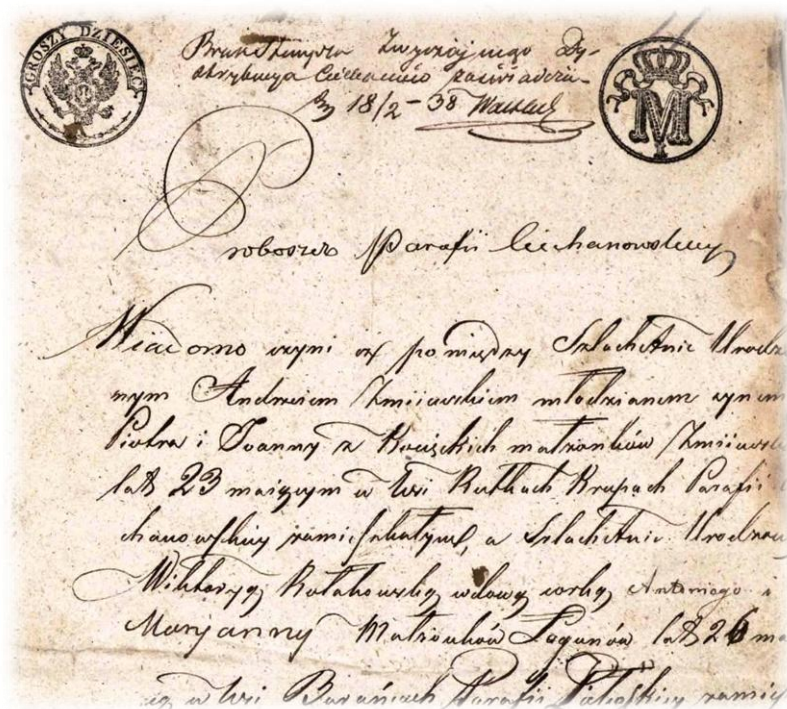 GROSZY DZIESIĘĆ
Brak Stempla Zwyczajnego Dy-
strybucya Ciechanowiec zaświadcza
18/2 - 38
M
Proboszcz Parafii Ciechanowskiey
Wiadomo czyni iż pomiędzy Szlachetnie Urodzo
nym Andrzeiem Żmiiewskiem młodzianem synem
Piotra i Joanny z Kosięckich małżonków Żmiiewsk
lat 23 maiącym w Wsi Rutkach Krupach Parafii
chanowskiey zamieszkałym, a Szlachetnie Urodzoną
Wiktoryą Kołakowską wdową corką Antoniego i
Maryanny Małżonków Łaganów lat 26 ma
iącą w Wsi Baraniach Parafii zamie